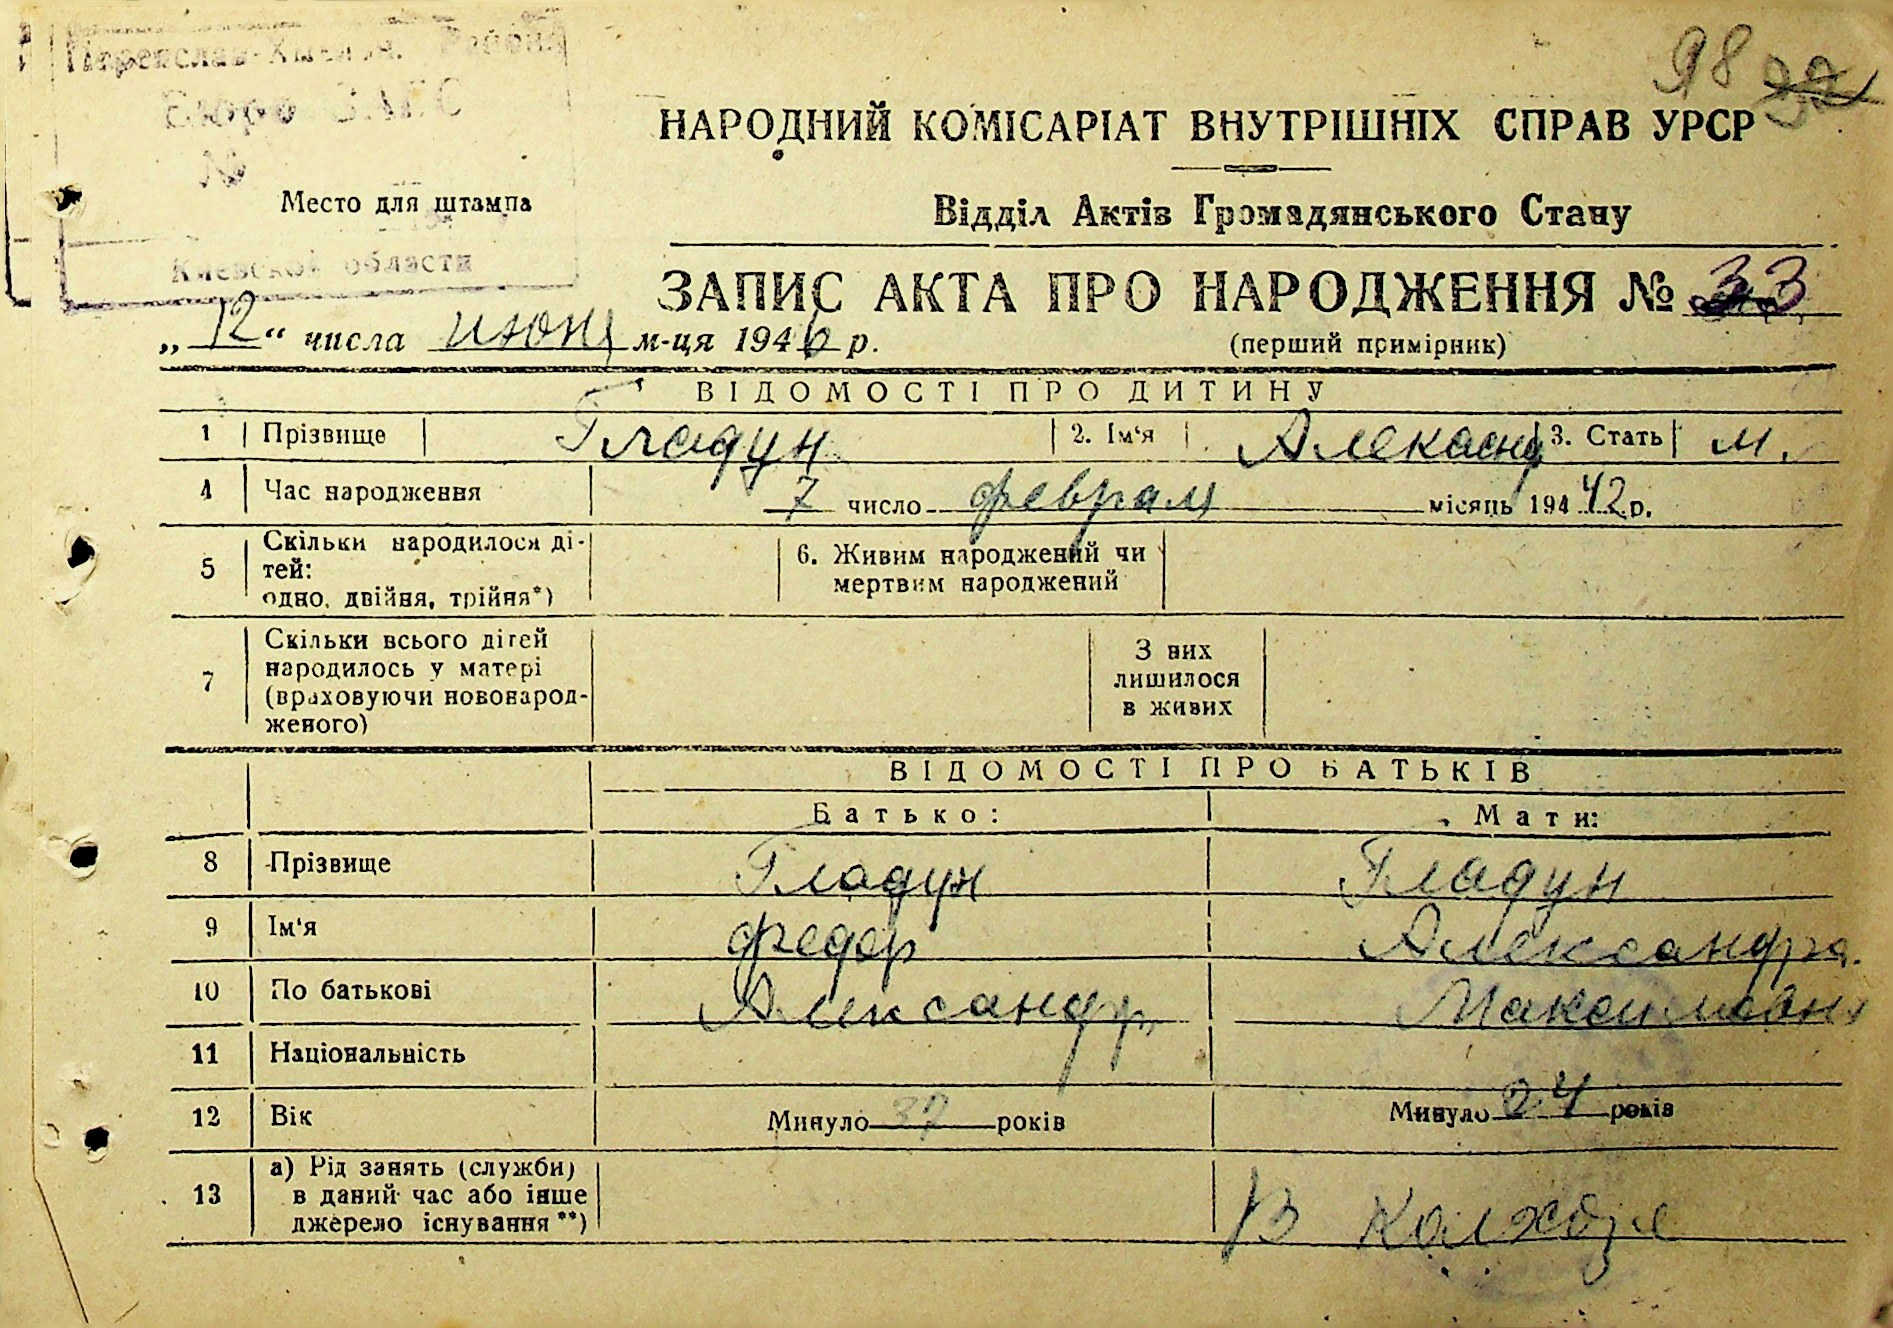 98
Бюро ЗАГС
№
Место для штампа
Киевской области
НАРОДНИЙ КОМІСАРІАТ ВНУТРІШНІХ СПРАВ УРСР
Відділ Актів Громадянського Стану
ЗАПИС АКТА ПРО НАРОДЖЕННЯ № 33
„12“ числа июня м-ця 1946 р.
(перший примірник)
ВІДОМОСТІ ПРО ДИТИНУ
1 Прізвище Гладун 2. Ім'я 3. Стать м.
4 Час народження 7 число февраля місяць 194 42 р.
5 Скільки народилося ді-
тей:
одно, двійня, трійня*)
6. Живим народжений чи
мертвим народжений
7 Скільки всього дітей
народилось у матері
(враховуючи новонарод-
женого)
З них
лишилося
в живих
ВІДОМОСТІ ПРО БАТЬКІВ
Батько: Мати:
8 Прізвище Гладун Гладун
9 Ім'я Федор Александра
10 По батькові Александр
11 Національність
12 Вік Минуло 37 років Минуло 24 років
13 а) Рід занять (служби)
в даний час або інше
джерело існування **)
В колхозе